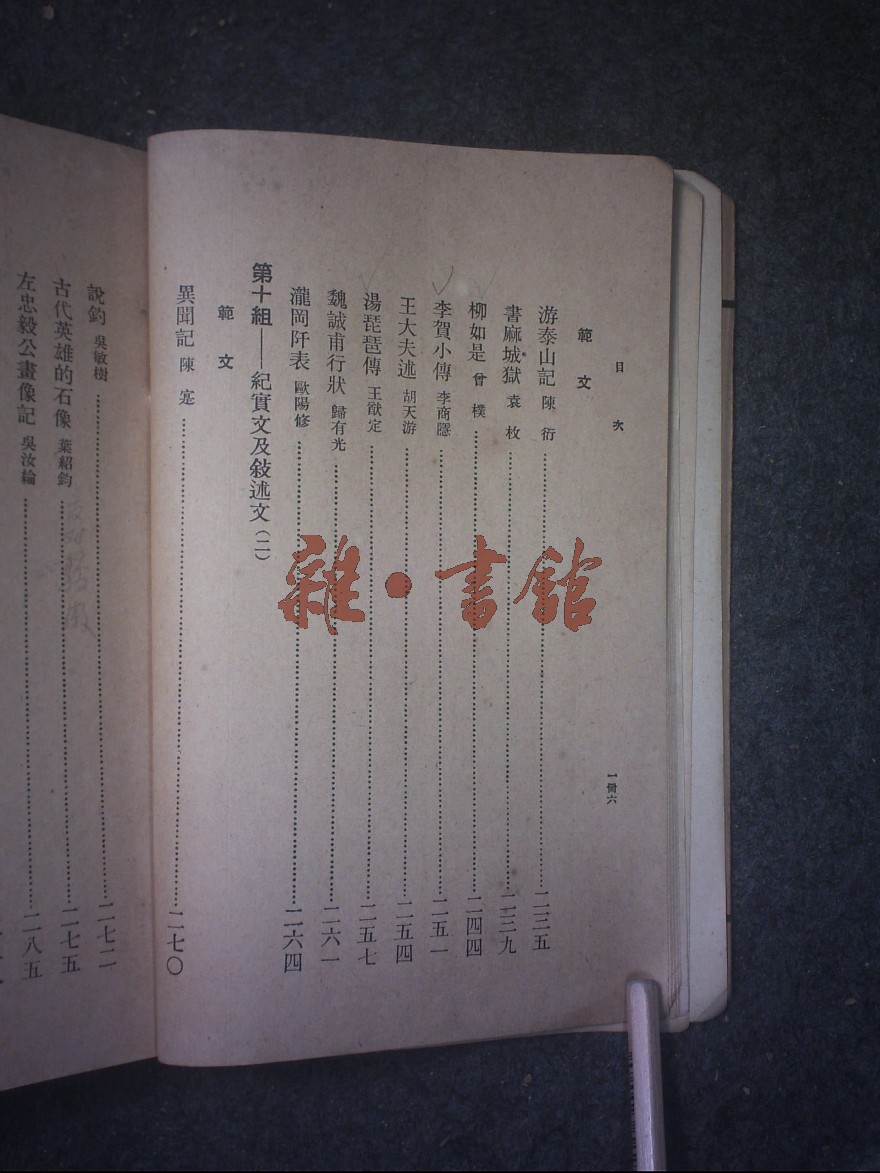 目次
一冊六
範文
游泰山記 陳衍 二三五
書麻城獄 袁枚 二三九
柳如是 曾樸 二四四
李賀小傳 李商隱 二五一
王大夫述 胡天游 二五四
湯琵琶傳 王猷定 二五七
魏誠甫行狀 歸有光 二六一
瀧岡阡表 歐陽修 二六四
第十組——紀實文及敍述文(二)
範文
異聞記 陳寔 二七〇
說釣 吳敏樹 二七二
古代英雄的石像 葉紹鈞 二七五
左忠毅公畫像記 吳汝綸 二八五
雜·書館